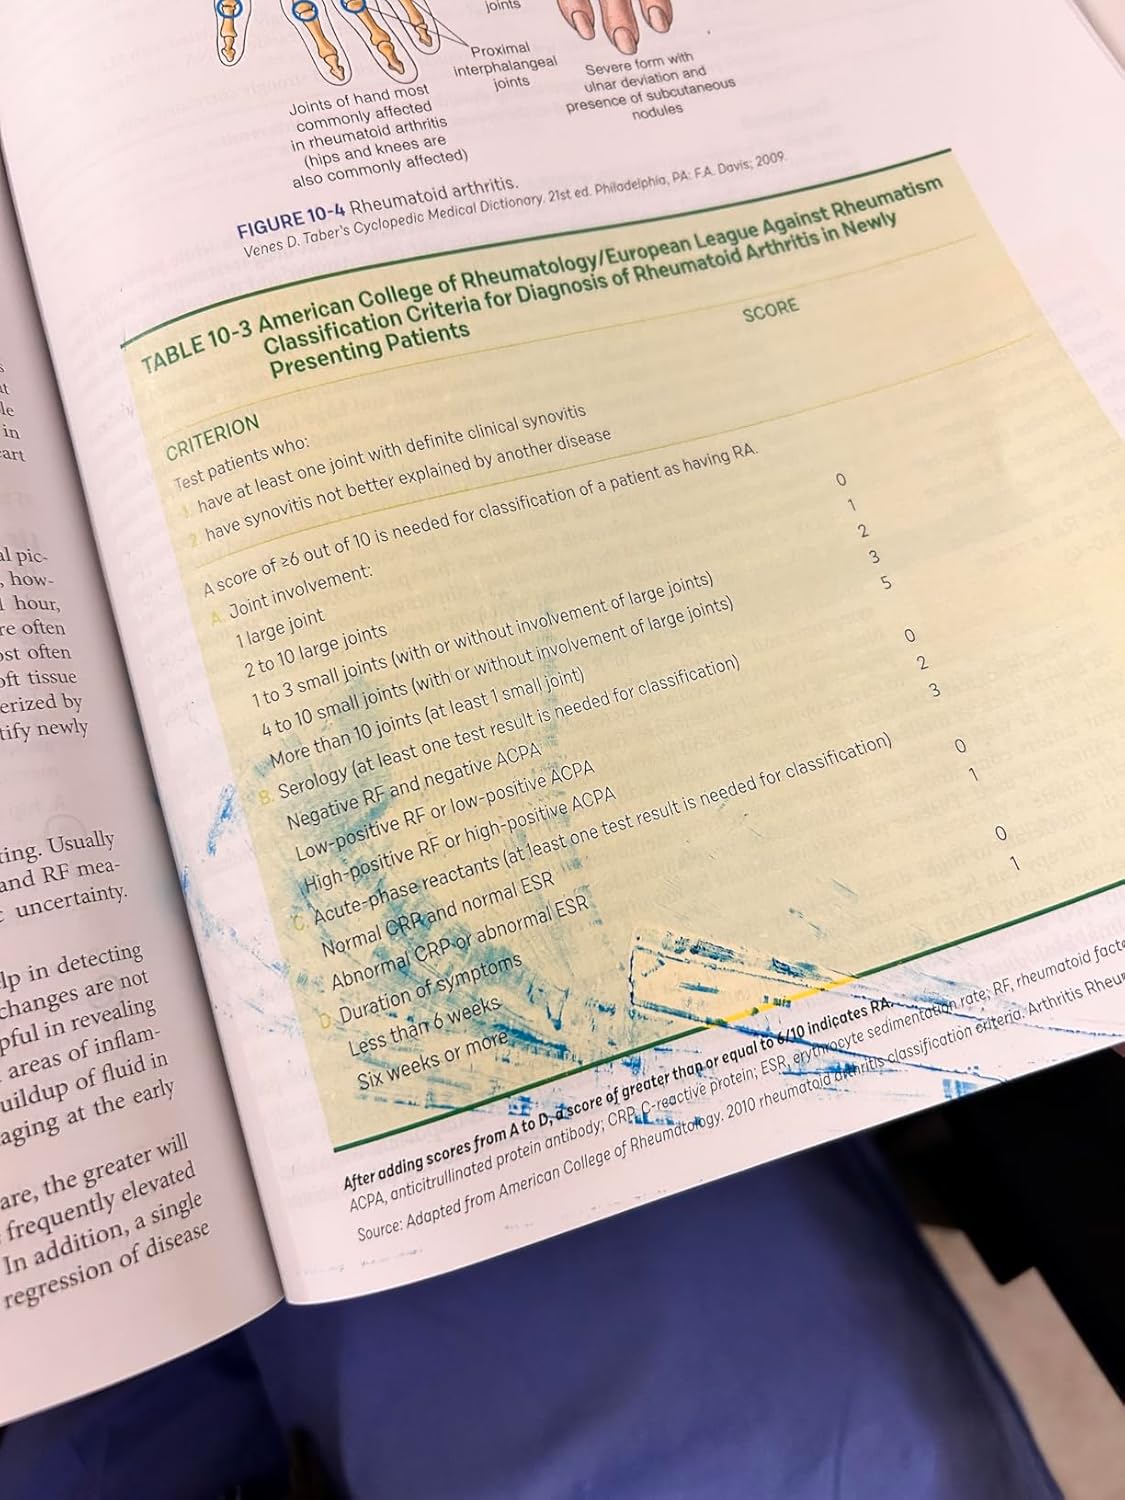 joints
Proximal
interphalangeal
joints
Joints of hand most
commonly affected
in rheumatoid arthritis
(hips and knees are
also commonly affected)
Severe form with
ulnar deviation and
presence of subcutaneous
nodules
FIGURE 10-4 Rheumatoid arthritis.
Venes D. Taber's Cyclopedic Medical Dictionary. 21st ed. Philadelphia, PA: F.A. Davis; 2009.
TABLE 10-3 American College of Rheumatology/European League Against Rheumatism
Classification Criteria for Diagnosis of Rheumatoid Arthritis in Newly
Presenting Patients
CRITERION SCORE
Test patients who:
1. have at least one joint with definite clinical synovitis
2. have synovitis not better explained by another disease
A score of ≥6 out of 10 is needed for classification of a patient as having RA.
A. Joint involvement:
1 large joint 0
2 to 10 large joints 1
1 to 3 small joints (with or without involvement of large joints) 2
4 to 10 small joints (with or without involvement of large joints) 3
More than 10 joints (at least 1 small joint) 5
B. Serology (at least one test result is needed for classification)
Negative RF and negative ACPA 0
Low-positive RF or low-positive ACPA 2
High-positive RF or high-positive ACPA 3
C. Acute-phase reactants (at least one test result is needed for classification)
Normal CRP and normal ESR 0
Abnormal CRP or abnormal ESR 1
D. Duration of symptoms
Less than 6 weeks 0
Six weeks or more 1
After adding scores from A to D, a score of greater than or equal to 6/10 indicates RA.
ACPA, anticitrullinated protein antibody; CRP, C-reactive protein; ESR, erythrocyte sedimentation rate; RF, rheumatoid
Source: Adapted from American College of Rheumatology. 2010 rheumatoid arthritis classification criteria. Arthritis
le
in
al pic-
, how-
hour,
re often
ost often
oft tissue
erized by
tify newly
ting. Usually
and RF mea-
uncertainty.
lp in detecting
changes are not
pful in revealing
areas of inflam-
uildup of fluid in
aging at the early
are, the greater will
frequently elevated
In addition, a single
regression of disease